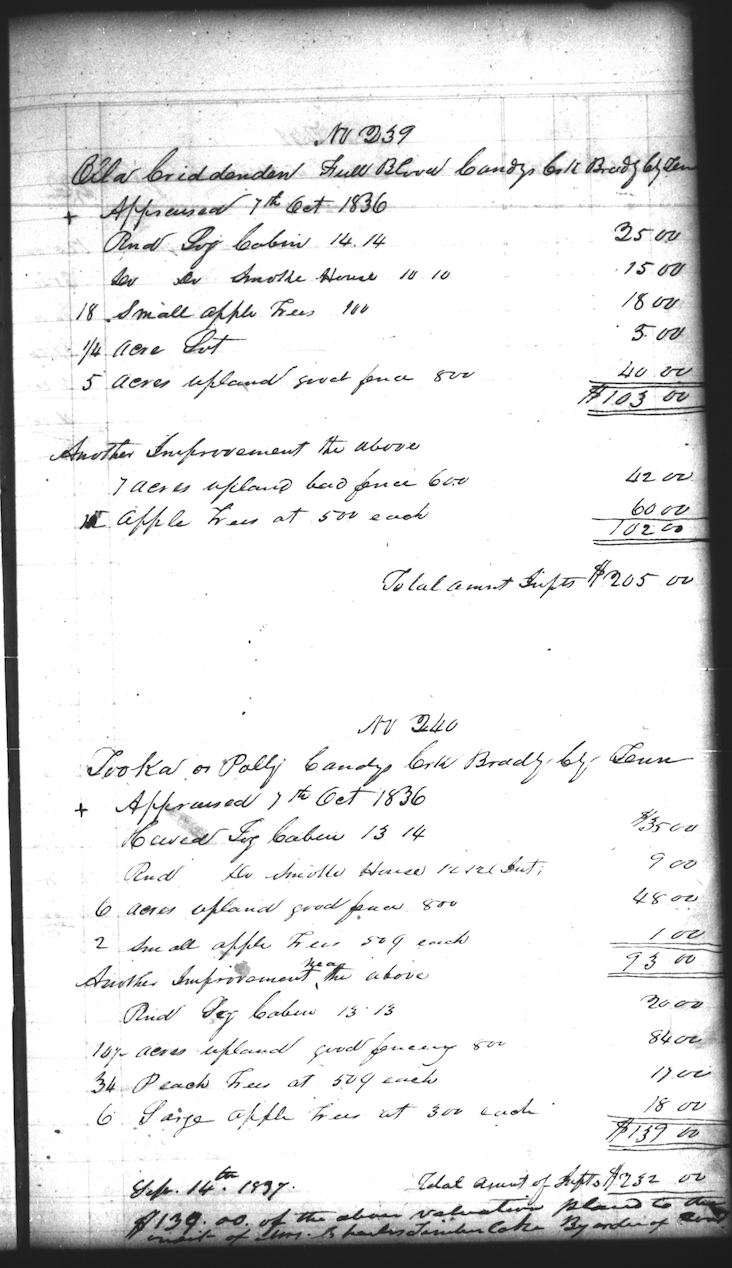 No 239
Crittenden Full Blood Candys Crk Brady Cty Ten
+ Appraised 7th Oct 1836
Rnd Log Cabin 14.14 25 00
Do Do Smoke House 10 10 15 00
18 Small apple Trees 100 18 00
1/4 acre Lot 5 00
5 acres upland good fence 800 40 00
$103 00
Another Improvement the above
7 acres upland bad fence 600 42 00
Apple Trees at 500 each 60 00
102 00
Total amnt Impts $205 00
No 240
Tooka or Polly Candys Crk Brady Cty Tenn
+ Appraised 7th Oct 1836
Hewed Log Cabin 13 14 $35 00
Rnd Do Smoke House 9 00
6 acres upland good fence 800 48 00
2 Small apple Trees 50¢ each 1 00
93 00
Another Improvement near the above
Rnd Log Cabin 13.13 20 00
10½ acres upland good fencing 800 84 00
34 Peach Trees at 50¢ each 17 00
6 Large apple Trees at 300 each 18 00
$139 00
Total amnt of Impts $232 00
Sep. 14th 1837.
$139.00. of the above valuation placed to the
credit of Mrs. Charles Timberlake By order of